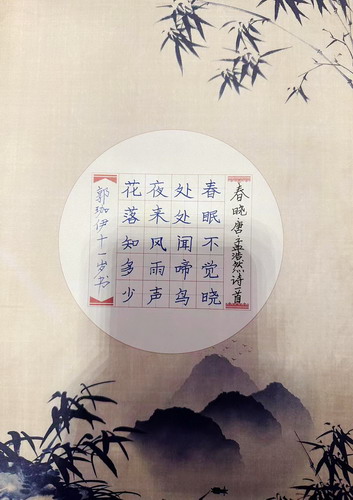 春晓唐孟浩然诗一首
春眠不觉晓
处处闻啼鸟
夜来风雨声
花落知多少
郭珈伊十一岁书